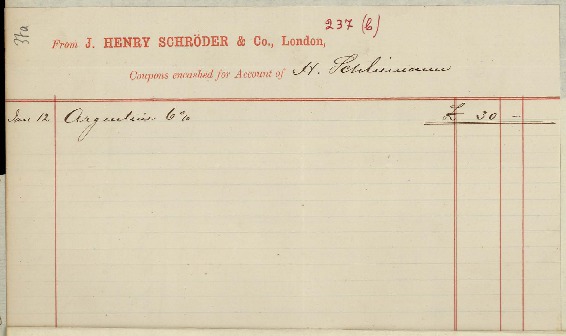 37a
237 (6)
From J. HENRY SCHRÖDER & Co., London,
Coupons encashed for Account of H. Schliemann
Jan 12 Argentine 6% £ 30 -